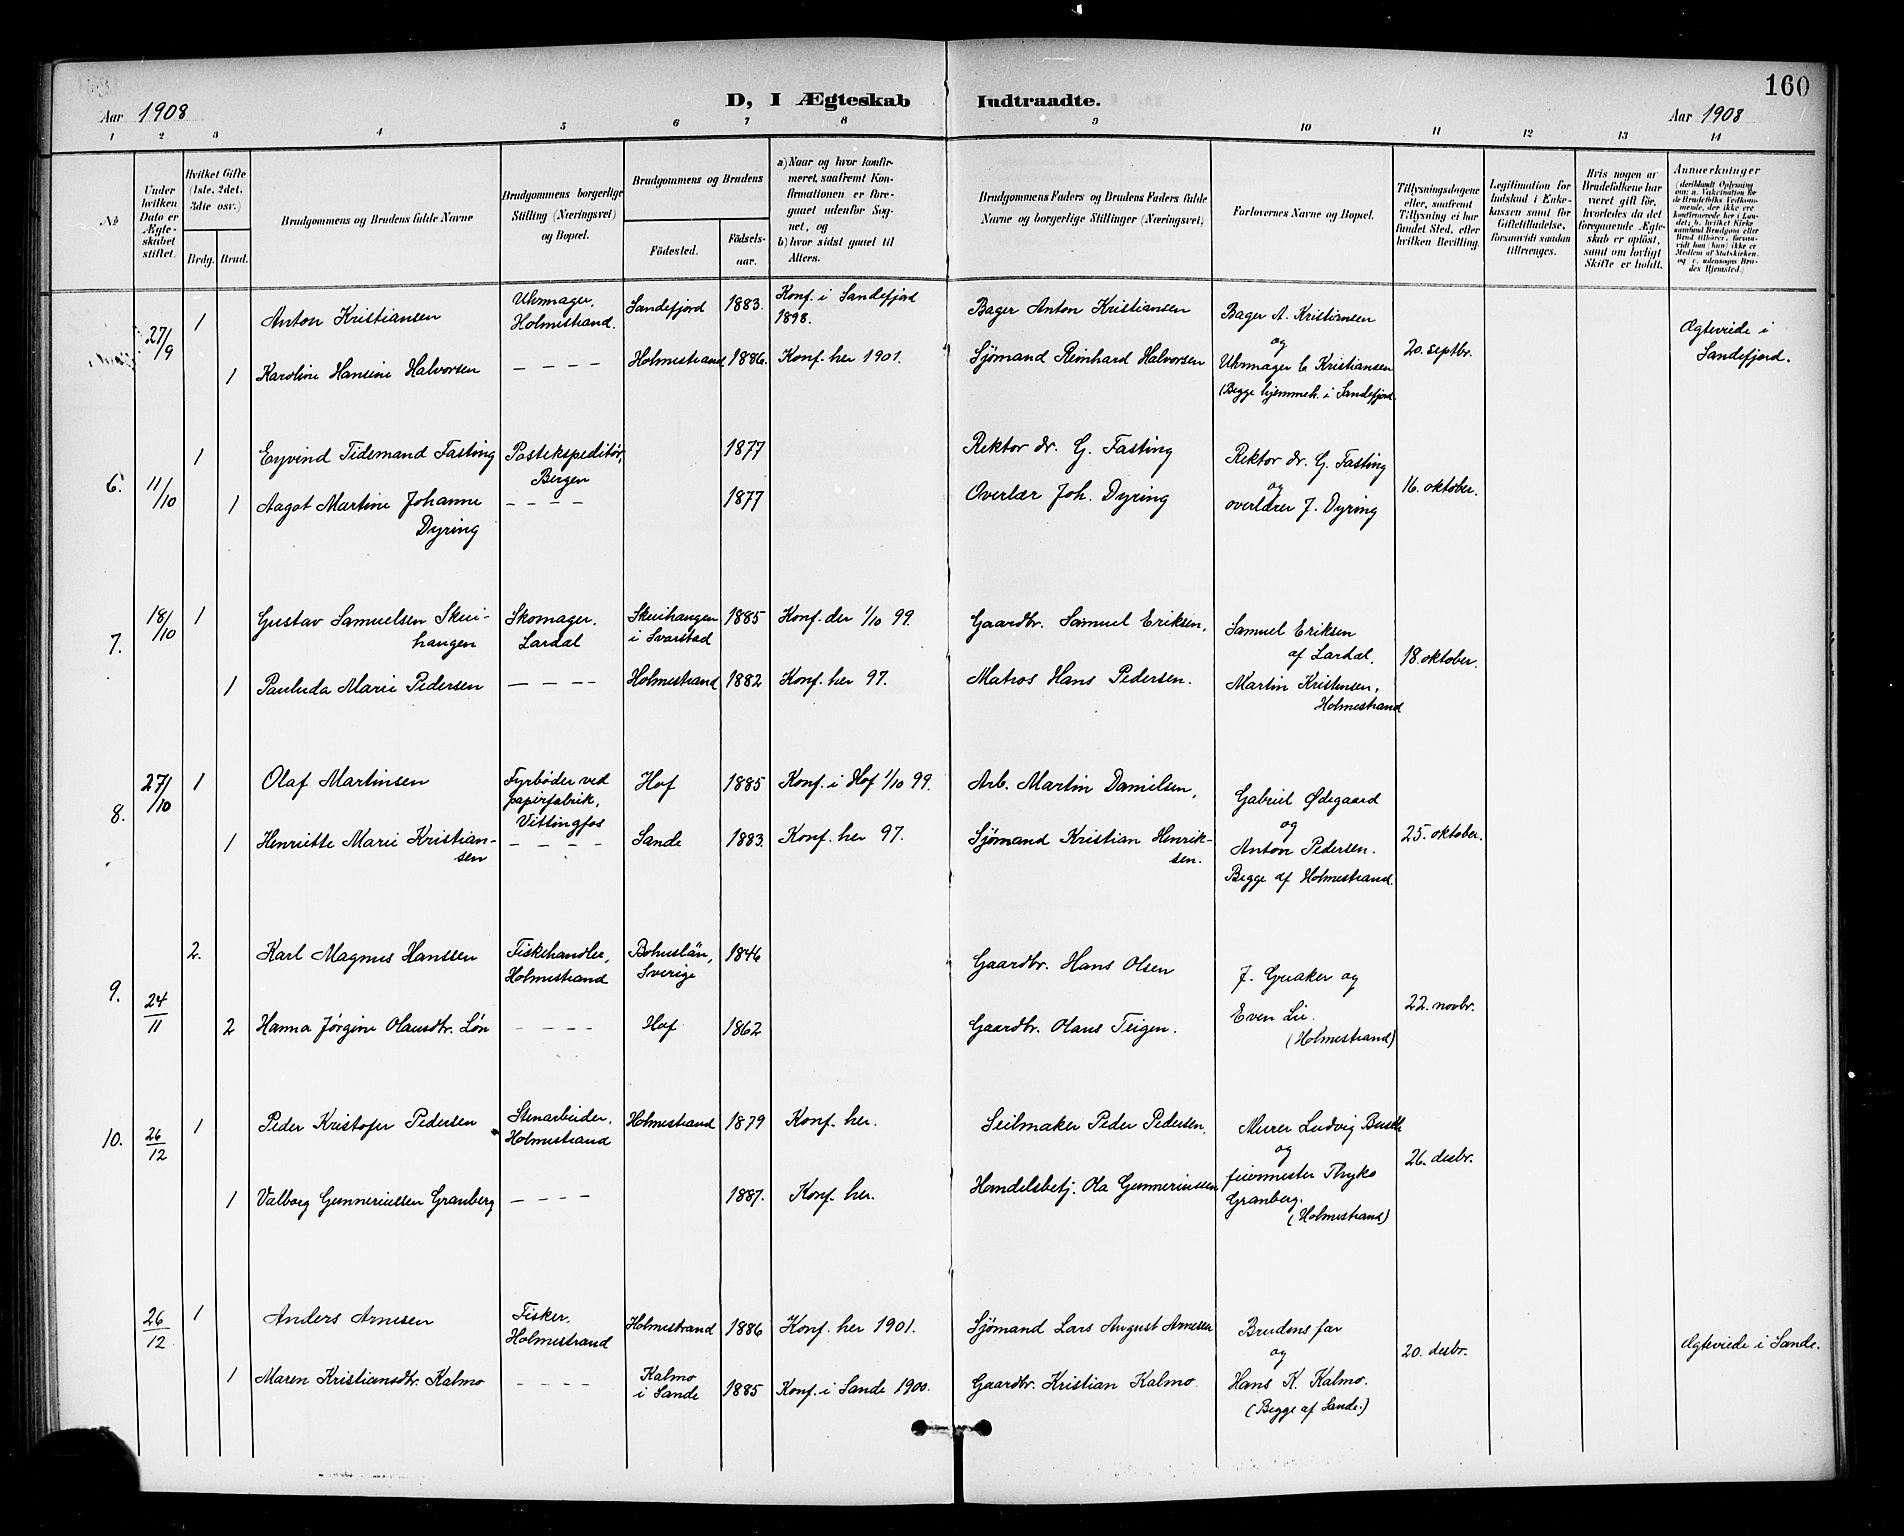 160
Aar 1908
D, I Ægteskab Indtraadte.
Aar 1908
1 2 3 4 5 6 7 8 9 10 11 12 13 14
No
Under hvilken Dato er Ægteskabet stiftet.
Hvilket Gifte (1ste, 2det, 3die osv.)
Brdg. Brud.
Brudgommens og Brudens fulde Navne
Brudgommens borgerlige Stilling (Næringsvei) og Bopæl.
Brudgommens og Brudens
Födested.
Födselsaar.
a) Naar og hvor konfirmeret, saafremt Konfirmationen er foregaaet udenfor Sognet, og
b) hvor sidst gaaet til Alters.
Brudgommens Faders og Brudens Faders fulde Navne og borgerlige Stillinger (Næringsvei)
Forlovernes Navne og Bopæl.
Tillysningsdagene eller, saafremt Tillysning ei har fundet Sted, efter hvilken Bevilling.
Legitimation for Indskud i Enkekassen samt for Giftetilladelse, forsaavidt saadan tiltrænges.
Hvis nogen af Brudefolkene har været gift för, hvorledes da det foregaaende Ægteskab er oplöst, samt om lovligt Skifte er holdt.
Anmærkninger
(deriblandt Oplysning om: a. Vakcination for de Brudefolks Vedkommende, der ikke ere konfirmerede her i Landet; b. hvilket Kirkesamfund Brudgom eller Brud tilhörer, forsaavidt han (hun) ikke er Medlem af Statskirken, og c. udensogns Brudes Hjemsted.)
27/9 1 Anton Kristiansen Uhrmager, Holmestrand. Sandefjord 1883. Konf. i Sandefjord 1898. Bager Anton Kristiansen Bager A. Kristiansen og
1 Karoline Hansine Halvorsen - - - - Holmestrand 1886. Konf. her 1901. Sjømand Reinhard Halvorsen Uhrmager C Kristiansen (Begge hjemmeh. i Sandefjord. 20. septbr. Ægteviede i Sandefjord.
6. 11/10 1 Eyvind Tidemand Fasting Postekspeditør, Bergen 1877 Rektor dr. G. Fasting Rektor dr. G. Fasting og
1 Aagot Martine Johanne Dyring - - - - 1877 Overlær Joh. Dyring overlærer J. Dyring 16. oktober.
7. 18/10 1 Gustav Samuelsen Skuihangen Skomager, Lardal Skuihangen i Svarstad 1885 Konf. der 1/10 99. Gaardbr. Samuel Eriksen, Samuel Eriksen af Lardal.
1 Pauluda Marie Pedersen - - - - Holmestrand 1882 Konf. her 97. Matros Hans Pedersen. Martin Kristensen, Holmestrand 18. oktober.
8. 27/10 1 Olaf Martinsen Fyrbøder ved papirfabrik, Vittingfos Hof 1885 Konf. i Hof 1/10 99. Arb. Martin Danielsen, Gabriel Ødegaard og
1 Henriette Marie Kristiansen - - - - Sande 1883. Konf. her 97. Sjømand Kristian Henriksen. Anton Pedersen. Begge af Holmestrand. 25. oktober.
9. 24/11 2. Karl Magnus Hanssen Fiskehandler, Holmestrand Bohuslän, Sverige 1846 Gaardbr. Hans Olsen J. Guaker og
2 Hanna Jørgine Olausdtr. Løn - - - - Hof 1862 Gaardbr. Olaus Teigen. Even Lie. (Holmestrand) 22. novbr.
10. 26/12 1 Peder Kristofer Pedersen Stenarbeider, Holmestrand Holmestrand 1879 Konf. her. Seilmaker Peder Pedersen, Murer Ludvig Busch og
1 Valborg Gunneriussen Granberg - - - - 1887. Konf. her. Handelsbetj. Ola Gunneriussen feiermester Thyko Granberg. (Holmestrand) 26. desbr.
26/12 1 Anders Arnesen Fisker, Holmestrand Holmestrand 1886 Konf. her 1901. Sjømand Lars August Arnesen Brudens far og
1 Maren Kristiansdtr. Kalmo - - - - Kalmo i Sande 1885 Konf. i Sande 1900. Gaardbr. Kristian Kalmo. Hans K. Kalmo. (Begge af Sande.) 20. desbr. Ægteviede i Sande.